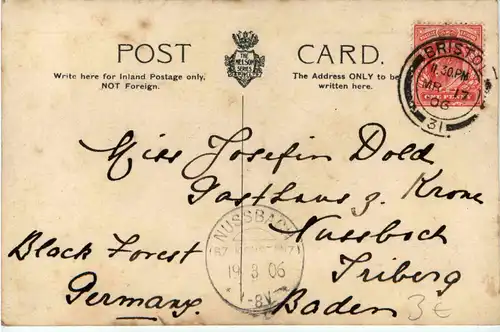 POST CARD.
THE NELSON SERIES
Write here for Inland Postage only,
NOT Foreign.
The Address ONLY to be
written here.
BRISTOL
MR 17
06
31
ONE PENNY
Miss Josefin Dold
Gasthaus z. Krone
Nussbach
Triberg
Baden
Black Forest
Germany.
NUSSBACH
19 3 06
-8V.
3€